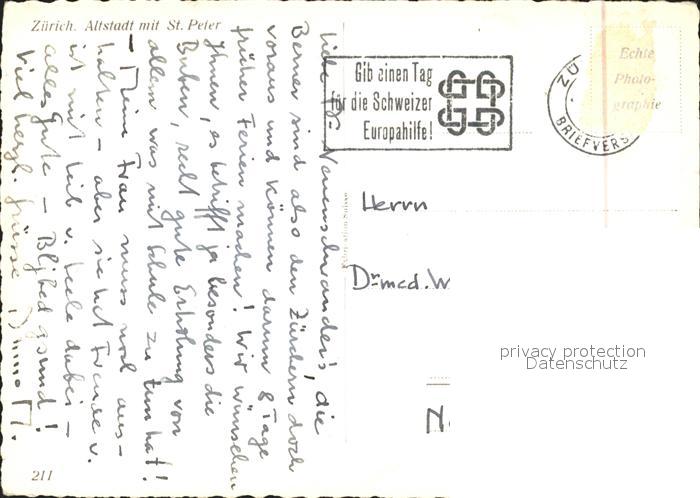 Zürich. Altstadt mit St. Peter
Liebe Neuenschwander's, die
Berner sind also den Zürchern doch
voraus und können darum 8 Tage
früher Ferien machen! Wir wünschen
Ihnen, es betrifft ja besonders die
Buben, recht gute Erholung von
allem was mit Schule zu tun hat!
– Meine Frau muss noch aus-
halten – aber sie hat Freude u.
ist mit Leib u. Seele dabei –
alles Gute – Blibed gsund!
Viel herzl. Grüsse
211
Gib einen Tag
für die Schweizer
Europahilfe!
ZÜ
BRIEFVERS
Echte
Photo-
graphie
Herrn
Dr med. W
N
privacy protection
Datenschutz